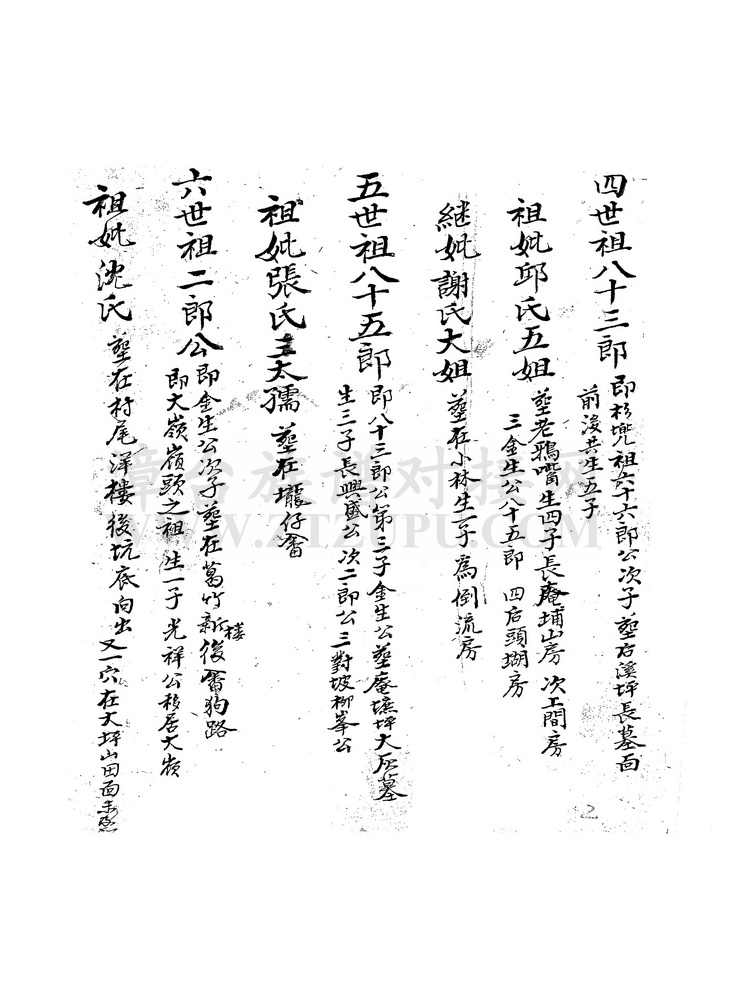 四世祖八十三郎
即杉兜祖六十六郎公次子塟右溪坪長墓面
前後共生五子
祖妣邱氏五姐
塟老鴉嘴生四子長庵埔山房 次上間房
三金生公八十五郎 四后頭湖房
継妣謝氏大姐 塟在小林生一子為倒流房
五世祖八十五郎
即八十三郎公第三子金生公塟庵墘坪大灰墓
生三子長興盛公次二郎公三對坡柳峯公
祖妣張氏三太孺 塟在壠仔畬
六世祖二郎公
即金生公次子塟在葛竹新樓後畬狗路
即大嶺嶺頭之祖生一子光祥公移居大嶺
祖妣沈氏 塟在村尾洋樓後坑底向出又一穴在大坪山田面
章台族谱对接网
WWW.ZTZUPU.COM
2